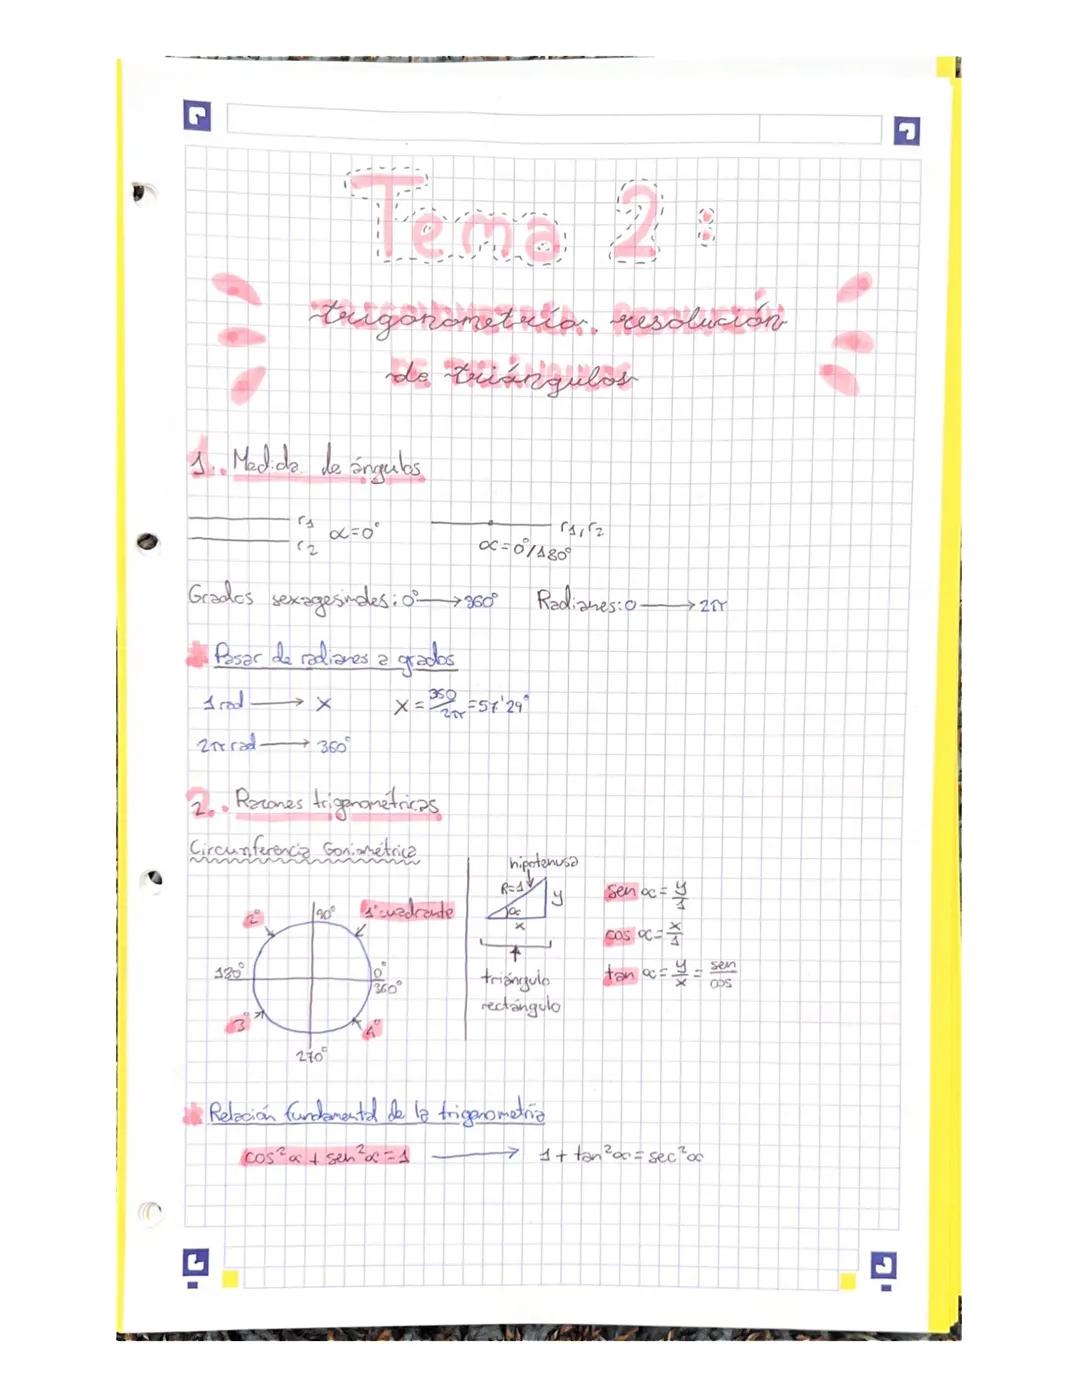 Tema 2:
trigonometría. resolución
de triángulos
1.. Medida de ángulos
r1
r2
α=0°
r1,r2
α=0°/180°
Grados sexagesimales: 0° → 360° Radianes: 0 → 2π
* Pasar de radianes a grados
1 rad → x x = 360/2π = 57'29°
2π rad → 360°
2.. Razones trigonométricas
Circunferencia Goniométrica
90°
1° cuadrante
2°
180°
0°
360°
3°
4°
270°
hipotenusa
R=1
y
α
x
triángulo
rectángulo
sen α = y/1
cos α = x/1
tan α = y/x = sen/cos
* Relación fundamental de la trigonometría
cos²α + sen²α = 1 → 1 + tan²α = sec²α